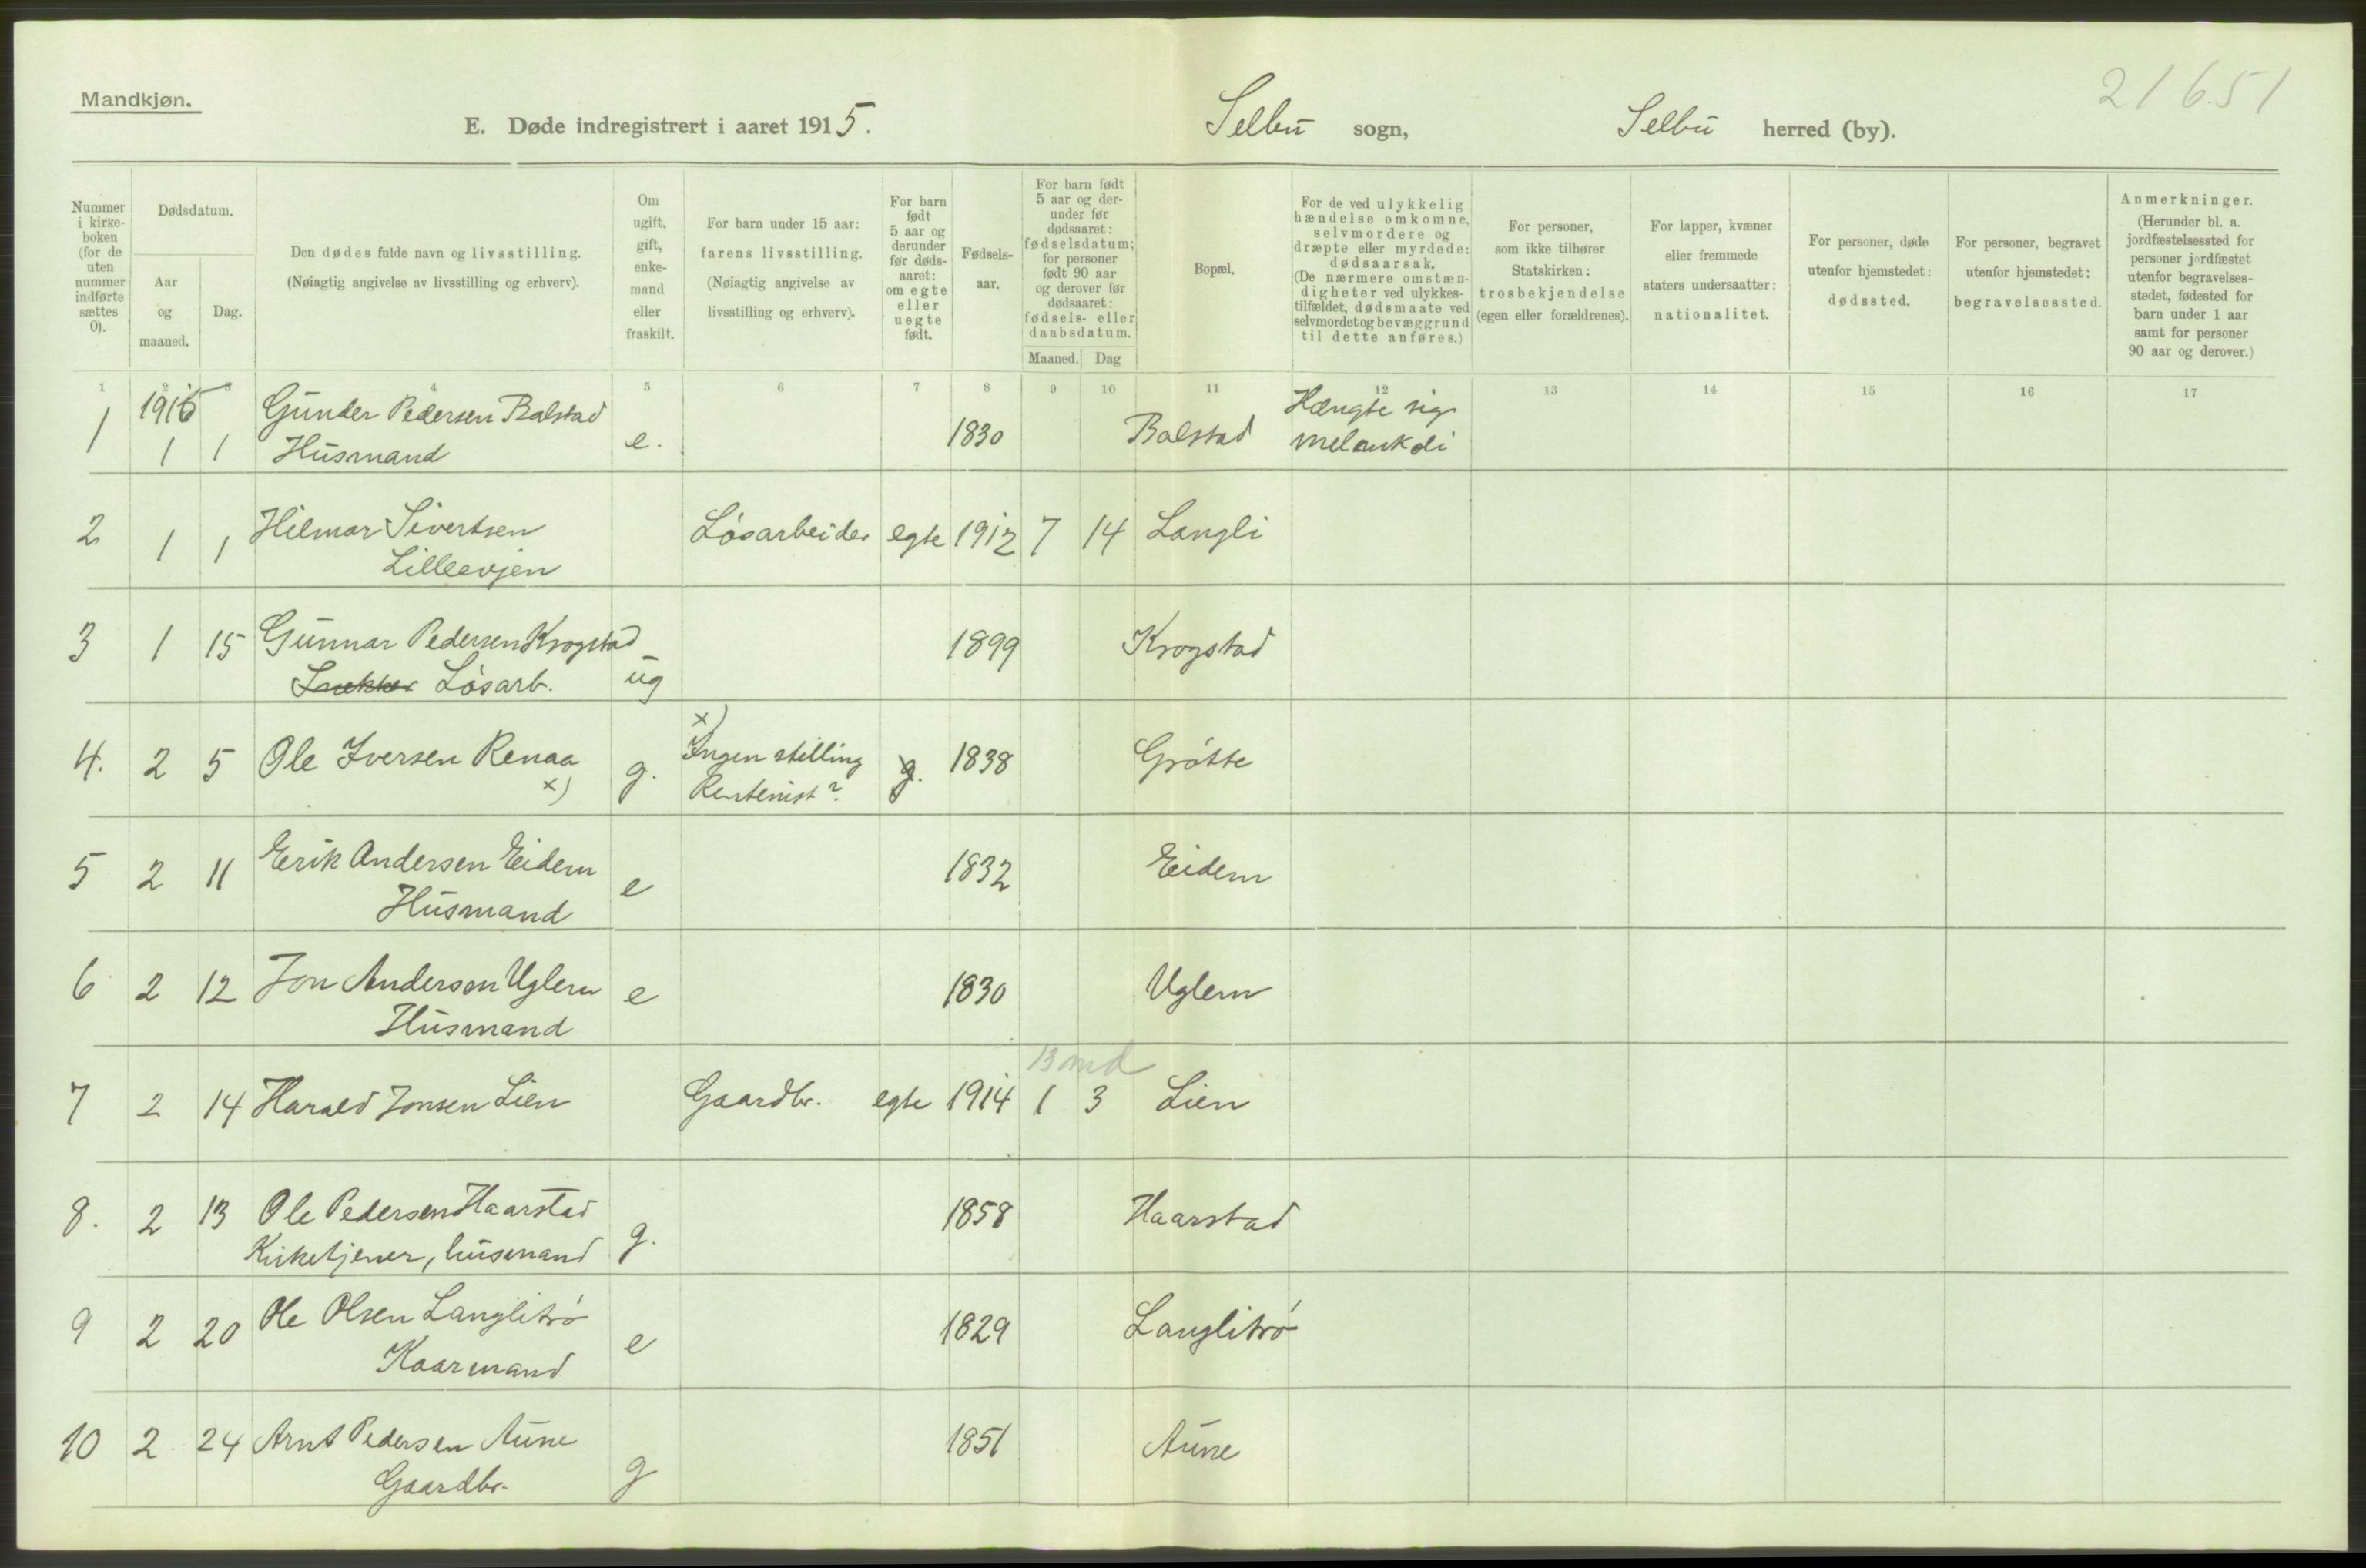 Mandkjøn.
21651
E. Døde indregistrert i aaret 1915. Selbu sogn, Selbu herred (by).
Nummer i kirke-boken (for de uten nummer indførte sættes 0).
Dødsdatum.
Aar og maaned.
Dag.
Den dødes fulde navn og livsstilling.
(Nøiagtig angivelse av livsstilling og erhverv).
Om ugift, gift, enke-mand eller fraskilt.
For barn under 15 aar:
farens livsstilling.
(Nøiagtig angivelse av livsstilling og erhverv).
For barn født 5 aar og derunder før døds-aaret: om egte eller uegte født.
Fødsels-aar.
For barn født 5 aar og der-under før dødsaaret: fødselsdatum; for personer født 90 aar og derover før dødsaaret: fødsels- eller daabsdatum.
Maaned. Dag
Bopæl.
For de ved ulykkelig hændelse omkomne, selvmordere og dræpte eller myrdede: dødsaarsak. (De nærmere omstæn-digheter ved ulykkes-tilfældet, dødsmaate ved selvmordet og bevæggrund til dette anføres.)
For personer, som ikke tilhører Statskirken: trosbekjendelse (egen eller forældrenes).
For lapper, kvæner eller fremmede staters undersaatter: nationalitet.
For personer, døde utenfor hjemstedet: dødssted.
For personer, begravet utenfor hjemstedet: begravelsessted.
Anmerkninger.
(Herunder bl. a. jordfæstelsessted for personer jordfæstet utenfor begravelses-stedet, fødested for barn under 1 aar samt for personer 90 aar og derover.)
1 2 3 4 5 6 7 8 9 10 11 12 13 14 15 16 17
1915 Gunder Pedersen Balstad Hængte sig
1 1 1 Husmand e. 1830 Balstad melankoli
2 1 1 Hilmar Sivertsen Løsarbeider egte 1912 7 14 Langli
Lilleevjen
3 1 15 Gunnar Pedersen Krogstad 1899 Krogstad
Løsarb. ug
x)
4. 2 5 Ole Iversen Renaa g. Ingen stilling g. 1838 Grøtte
x) Rentenist?
5 2 11 Erik Andersen Eidem e 1832 Eidem
Husmand
6 2 12 Jon Anderson Uglem e 1830 Uglem
Husmand
13 md
7 2 14 Harald Jonsen Lien Gaardbr. egte 1914 1 3 Lien
8. 2 13 Ole Pedersen Haarstad 1858 Haarstad
Kirketjener, husmand g.
9 2 20 Ole Olsen Langlitrø 1829 Langlitrø
Kaarmand e
10 2 24 Arnt Pedersen Aune 1851 Aune
Gaardbr. g